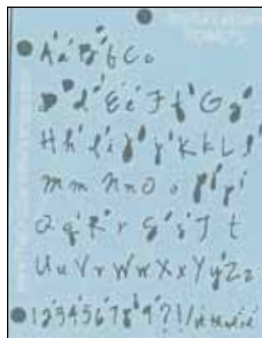 A a B b C c
D d E e F f G g
H h I i J j K k L l
M m N n O o P p
Q q R r S s T t
U u V v W w X x Y y Z z
1 2 3 4 5 6 7 8 9 ? ! /